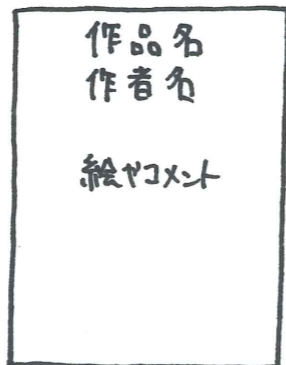 作品名
作者名
絵やコメント